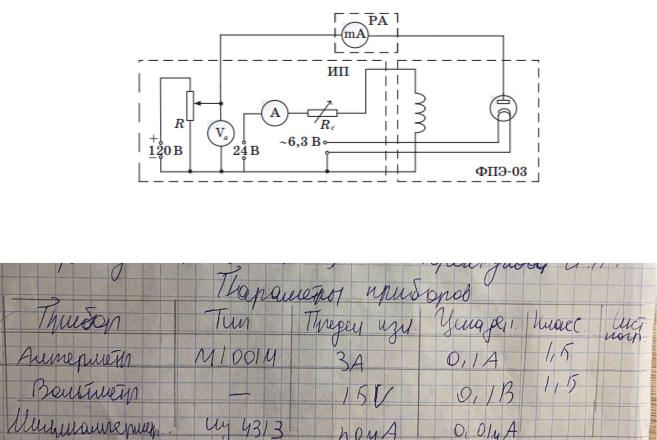 РА
mA
ИП
A
R
Rc
Va
+
120 В
−
24 В
~6,3 В
ФПЭ-03
Параметры приборов
Прибор Тип Предел изм. Цена дел. Класс
Амперметр М1001М 3А 0,1А 1,5
Вольтметр — 15V 0,1В 1,5
Миллиамперметр. Ц 4313 0,01мА